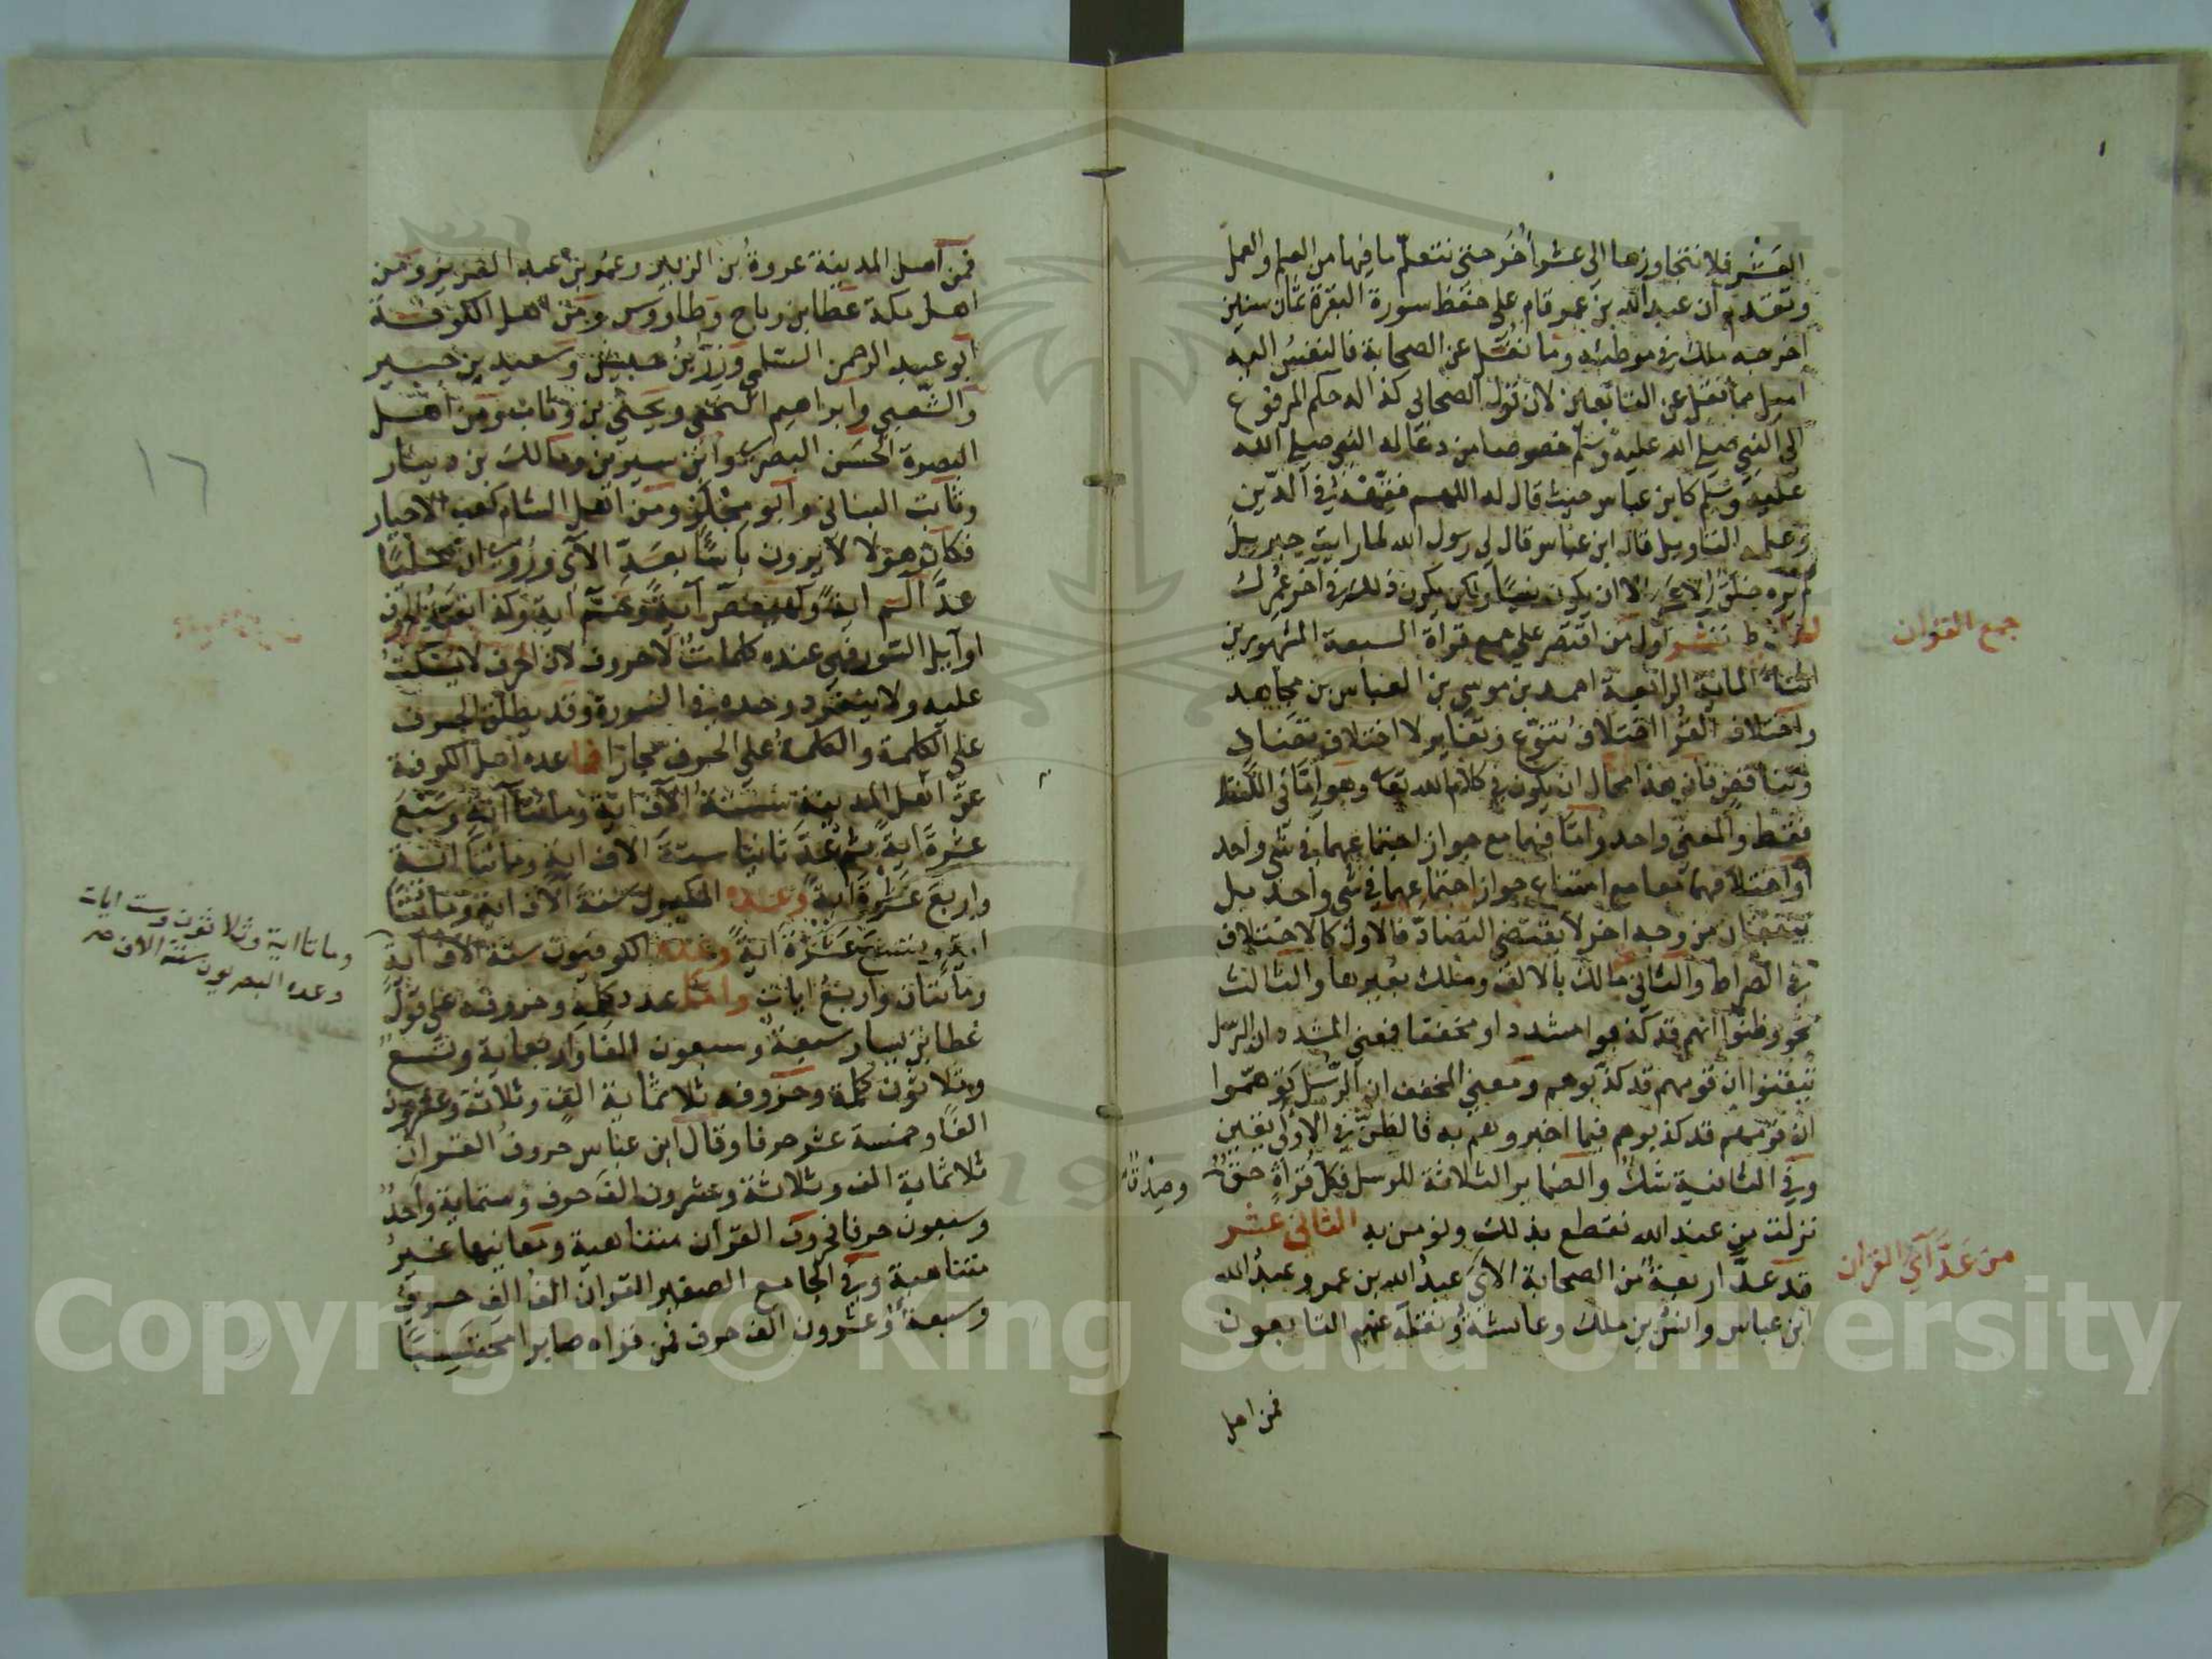 العشر فلا نتجاوزها الى عشر أخر حتى نتعلم ما فيها من العلم والعمل
وتقدم ان عبد الله بن عمر قام على حفظ سورة البقرة ثمان سنين
اخرجه ملك في موطئه وما نقل عن الصحابة فالنفس اليه
اميل مما نقل عن التابعين لان قول الصحابي كذا له حكم المرفوع
الى النبي صلى الله عليه وسلم خصوصا من دعا له النبي صلى الله
عليه وسلم كابن عباس حيث قال له اللهم فقهه في الدين
وعلمه التاويل قال ابن عباس قال لي رسول الله لما رايت جبريل
لم يره خلق الا عمي الا ان يكون نبيا ولكن يكون ذلك في اخر عمرك
جمع القران
تنبيه اول من اقتصر على جمع قراة السبعة المشهورين
اثناء الماية الرابعة احمد بن موسى بن العباس بن مجاهد
واختلاف القرا اختلاف تنوع وتغاير لا اختلاف تضاد
وتناقض فان هذا محال ان يكون في كلام الله تعالى وهو اما في اللفظ
فقط والمعنى واحد واما فيهما مع جواز اجتماعهما في شي واحد
او اختلافهما معا مع امتناع جواز اجتماعهما في شي واحد بل
يتفقان من وجه اخر لا يقتضي التضاد فالاول كالاختلاف
في الصراط والثاني مالك بالالف وملك بغيرها والثالث
نحو وظنوا انهم قد كذبوا مشددا ومخففا فمعنى المشدد ان الرسل
تيقنوا ان قومهم قد كذبوهم ومعنى المخفف ان الرسل توهموا
ان قومهم قد كذبوهم فيما اخبروهم به فالظن في الاولى يقين
وفي الثانية شك والضماير الثلاثة للرسل فكل قراة حق
وصدق
نزلت من عند الله نقطع بذلك ونومن به الثاني عشر
من عد آي القران
قد عد اربعة من الصحابة الآي عبد الله بن عمر وعبد الله
ابن عباس وانس بن ملك وعائشة ونقله عنهم التابعون
فمن اهل
١٦
فمن اهل المدينة عروة بن الزبير وعمر بن عبد العزيز ومن
اهل مكة عطا بن رباح وطاووس ومن اهل الكوفة
ابو عبد الرحمن السلمي وزر بن حبيش وسعيد بن جبير
والشعبي وابراهيم النخعي ويحيى بن وثاب ومن اهل
البصرة الحسن البصري وابن سيرين ومالك بن دينار
وثابت البناني وابو مجلز ومن اهل الشام كعب الاحبار
فكان هولا لا يرون باسا بعد الآي وروي ان عليا
عد الم اية وكهيعص آية وحم اية وكذا بقية
اوايل السور فهي عنده كلمات لا حروف لان الحرف لا يسكت
عليه ولا ينفرد وحده في السورة وقد يطلق الحرف
على الكلمة والكلمة على الحرف مجازا فما عده اهل الكوفة
عن اهل المدينة ستة آلاف اية ومائتا آية وسبع
عشرة اية ثم عد ثانيا ستة الاف اية ومائتا اية
واربع عشرة اية وعده المكيون ستة آلاف اية ومائتا
اية وتسع عشرة اية وعده الكوفيون ستة آلاف آية
ومائتا اية وثلاثون وست ايات
وعده البصريون ستة الاف صح
ومائتان واربع ايات واما عدد كلمه وحروفه على قول
عطا بن يسار سبعة وسبعون الفا واربعماية وتسع
وثلاثون كلمة وحروفه ثلاثماية الف وثلاثة وعشرون
الفا وخمسة عشر حرفا وقال ابن عباس حروف القران
ثلاثماية الف وثلاثة وعشرون الف حرف وستماية واحد
وسبعون حرفا فحروف القرآن متناهية ومعانيها غير
متناهية وفي الجامع الصغير القران الف الف حرف
وسبعة وعشرون الف حرف فمن قراه صابرا محتسبا
Copyright © King Saud University